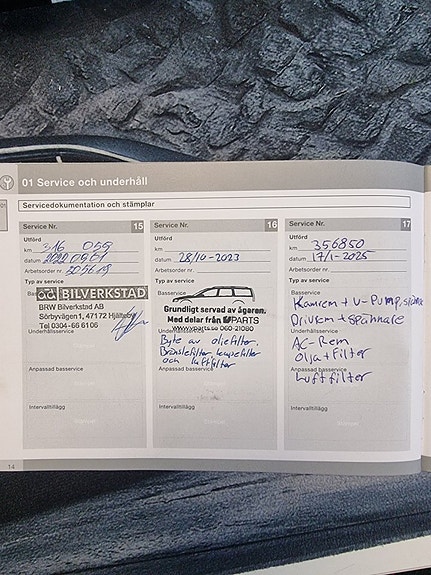 01 Service och underhåll
01
Servicedokumentation och stämplar
Service Nr. 15
Utförd
km 316 055
datum 2022 0501
Arbetsorder nr.
Typ av service
Basservice
BILVERKSTAD
BRW Bilverkstad AB
Sörbyvägen 1, 47172 Hjälteby
Tel 0304-66 6106
Underhållsservice
Anpassad basservice
Intervalltillägg
Service Nr. 16
Utförd
km
datum 28/10-2023
Arbetsorder nr.
Typ av service
Grundligt servad av ägaren.
Med delar från VPARTS
www.vparts.se 060-21080
Byte av oljefilter.
Bränslefilter, kupefilter
och luftfilter
Anpassad basservice
Intervalltillägg
Service Nr. 17
Utförd
km 356850
datum 17/1-2025
Arbetsorder nr.
Typ av service
Basservice
Kamrem + V-Pump,
Drivrem + spännare
Underhållsservice
AC-Rem
Olja + Filter
Anpassad basservice
Luftfilter
Intervalltillägg
14